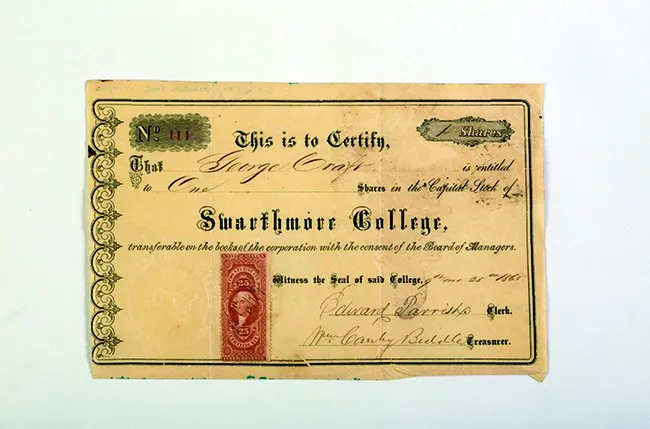 No. 111
1 Shares
This is to Certify,
That George Craft is entitled
to One Shares in the Capital Stock of
Swarthmore College,
transferable on the books of the corporation with the consent of the Board of Managers.
Witness the Seal of said College, 9th mo 25th 1865
Edward Parrish Clerk.
Wm Canby Biddle Treasurer.
25
25